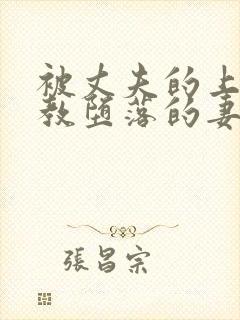 被丈夫的上
教堕落的妻
張昌宗